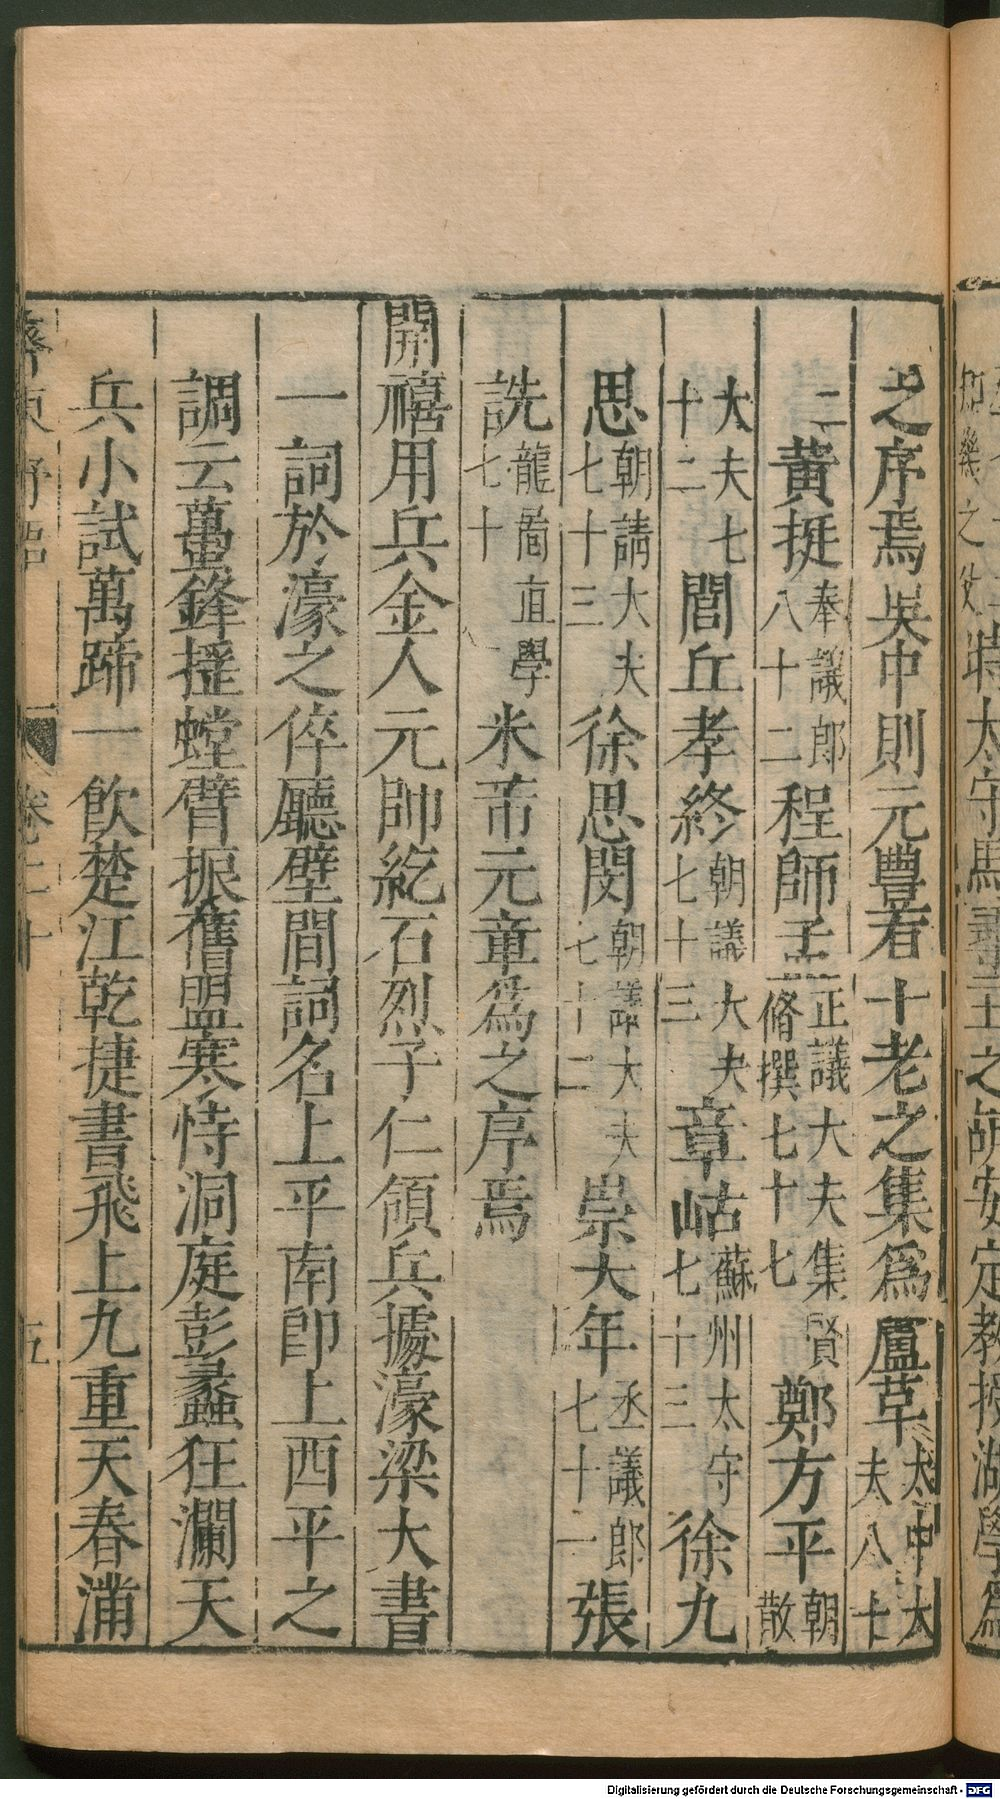 之序焉吳中則元豐有十老之集爲盧革太中大夫八十
二黃挺奉議郎八十二程師孟正議大夫集賢脩撰七十七鄭方平朝散
大夫七十二閭丘孝終朝議大夫七十三章岵蘇州太守七十三徐九
思朝請大夫七十三徐思閔朝議大夫七十二崇大年丞議郎七十一張
詵龍啚直學七十米芾元章爲之序焉
開禧用兵金人元帥紇石烈子仁領兵據濠梁大書
一詞於濠之倅廳壁間詞名上平南卽上西平之
調云蠆鋒搖螳臂振舊盟寒恃洞庭彭蠡狂瀾天
兵小試萬蹄一飲楚江乾捷書飛上九重天春滿
齊東野語
卷二十
五
Digitalisierung gefördert durch die Deutsche Forschungsgemeinschaft - DFG